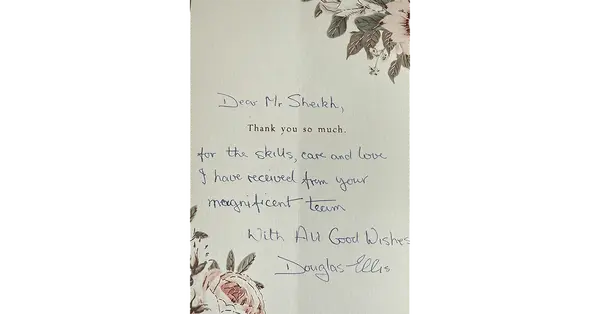 Dear Mr Sheikh,
Thank you so much.
for the skills, care and love
I have received from your
magnificent team
With All Good Wishes
Douglas Ellis